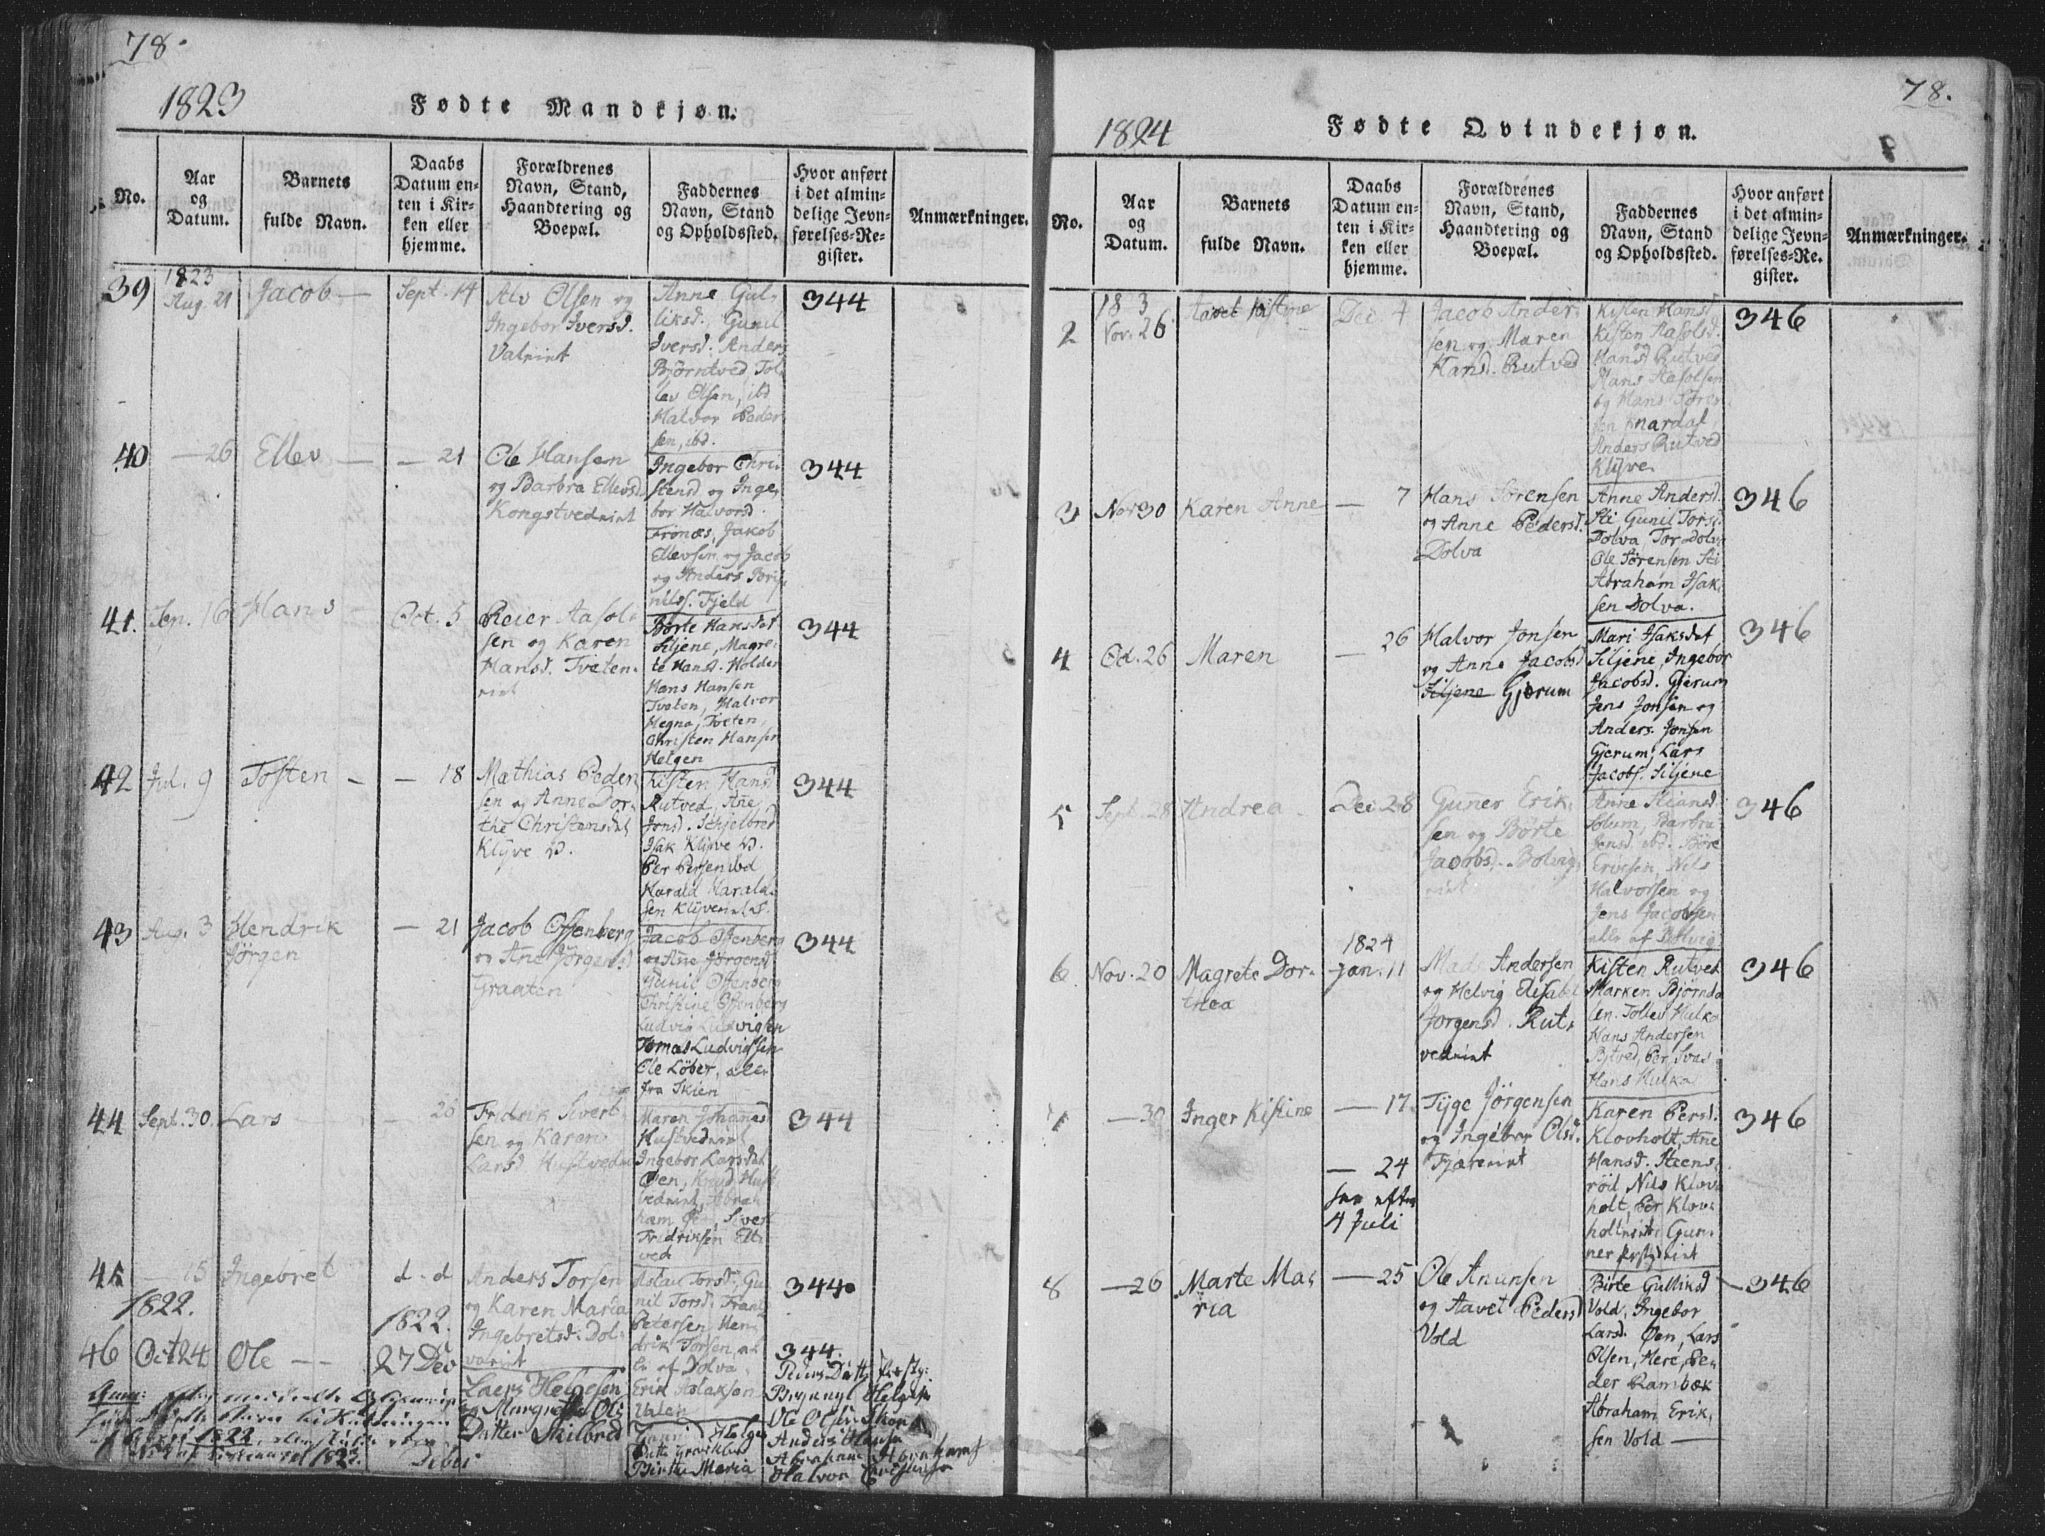 78.
1823
Fødte Mandkjøn.
No.
Aar
og
Datum.
Barnets
fulde Navn.
Daabs
Datum en-
ten i Kir-
ken eller
hjemme.
Forældrenes
Navn, Stand,
Haandtering og
Boepæl.
Faddernes
Navn, Stand
og Opholdssted.
Hvor anført
i det almin-
delige Jevn-
førelses-Re-
gister.
Anmærkninger.
39
1823
Aug. 21
Jacob
Sept. 14
Alv Olsen og
Ingebor Iversd.
Valeiet
Anne Gul-
liksd. Gunil
Iversd. Anders
Björntved Tol-
lev Olsen, ibd
Halvor Peder-
sen, ibd.
344
40
— 26
Ellev
— 21
Ole Hansen
og Barbra Ellevsd
Kongstvedeiet
Ingebor Chri-
stensd og Inge-
bor Halvorsd.
Fronæs, Jakob
Ellevsen og Jacob
og Anders
Fjeld
344
41.
Sep. 16
Hans
Oct. 5
Reier Aasol-
sen og Karen
Hansd. Tveten-
eiet
Börte Hansdet
Siljene, Magre-
te Hansd. Holden
Hans Hansen
Tveten, Halvor
Hegna, Tveten,
Christen Hansen
Helgen
344
42
Jul. 9
Tosten
— 18
Mathias Peder-
sen og Anne Dor-
the Christensdat
Klÿve
Kisten Hansd
Rutved, Añe
Jonsd. Skjelbred
Isak Klÿve
Per Persen ibd
Harald Harald-
sen Klÿveeiet
344
43
Aug. 3
Hendrik
Jörgen
— 21
Jacob Offenberg
og Añe Jörgensd
Graaten
Jacob Offenberg
og Añe Jörgensd
Gunil Offenberg
Christine Offenberg
Ludvig Ludvigsen
Tomas Ludvigsen
Ole Löber, alle
fra Skien
344
44
Sept. 30.
Lars
— 26
Fridrik Sivert-
sen og Karen
Larsd Hustvede
Maren Johanesd
Hustvedeiet
Ingebor Larsdat
Öen, Knud Hust-
vedeiet, Abra-
ham Öen, Sivert
Fridriksen Elt-
ved
344
45
— 15
Ingebret
d - d
Anders Torsen
og Karen Maria
Ingebretsd. Dol-
vaeiet
Aslau Torsd. Gu-
nil Torsd. Frans
Petersen, Hen-
drik Torsen, al-
le af Dolva
Erik Aslaksen
Valen
344.
1822.
46
Oct 24
Ole
1822.
27 Dec
Laers Helgeson
og Margrethe Ols
Datter Skilbred
344.
Ole Olsen
Anders
Abraham
Halvor
Birthe Maria
78.
1824
Fødte Qvindekjøn.
No.
Aar
og
Datum.
Barnets
fulde Navn.
Daabs
Datum en-
ten i Kir-
ken eller
hjemme.
Forældrenes
Navn, Stand,
Haandtering og
Boepæl.
Faddernes
Navn, Stand
og Opholdssted.
Hvor anført
i det almin-
delige Jevn-
førelses-Re-
gister.
Anmærkninger.
2
18 3
Nov. 26
Aavet Kistine
Dec. 4
Jacob Ander-
sen og Maren
Hansd. Rutved
Kisten Hansd
Kisten Aasolsd.
og
Hansd Rutved
Hans Aasolsen
og Hans Sören-
sen Knardal
Anders Rutved
Klÿve
346
3
Nov 30
Karen Anne
— 7
Hans Sörensen
og Anne Pedersd.
Dolva
Anne Andersd.
Sti Gunil Torsd.
Dolva Tor Dolva
Ole Sörensen Sti
Abraham Isak-
sen Dolva.
346
4
Oct. 26
Maren
— 26
Halvor Jonsen
og Anne Jacobsd
Siljene Gjerum
Mari Isaksdet
Siljene, Ingebor
Jacobsd. Gjerum
Jens Jonsen og
Anders Jonsen
Gjerum, Lars
Jacobs. Siljene
346
5
Sept. 28
Andrea
Dec 28
Guñer Erik-
sen og Börte
Jacobsd. Bolvig-
eiet
Anne Stiansd
Solum, Barbra
Jensd. ibd. Böre
Ericsen, Nils
Halvorsen og
Jens Jacobsen
alle af Bolvig
346
6
Nov. 20
Magrete Dor-
thea
1824
Jan. 11
Mads Andersen
og Helvig Elisabe
Jörgensd. Rut-
vedeiet
Kisten Rutved
Marken Björnda-
len. Tollev Hulka
Hans Andersen
Bÿtved, Per Svas-
Hans Hulka
346
7
— 30
Inger Kistine
— 17
— 24
4 Juli
Tÿge Jörgensen
og Ingebor Olsd.
Fjæreeiet
Karen Persd.
Klovholt, Añe
Hansd. Steens-
röil, Nils Klov-
holt, Per Klov-
holteiet. Gun-
ner
346
8
— 26
Marte Ma-
ria
— 25
Ole Anunsen
og Aavet Pedersd
Vold
Birte Gulliksd
Vold, Ingebor
Larsd. Öen, Lars
Olsen, Here, Pe-
der Rambæk
Abraham Erik-
sen Vold —
346